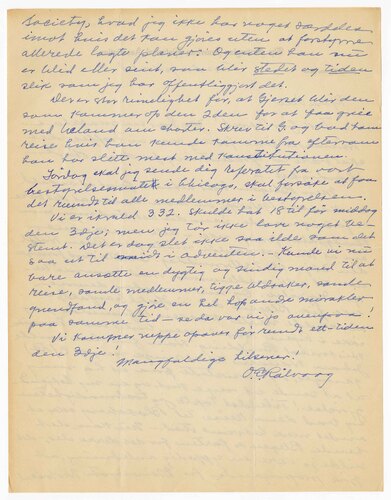 Society, hvad jeg ikke har noget særdeles
imot hvis det kan gjøres uten at forstyrre
allerede lagte planer. Og enten han nu
er blid eller seint, saa blir stedet og tiden
slik som jeg har offentliggjort det.
Der er stor rimelighed for, at Gjerset blir den
som kommer op den 2den for at faa greie
med Ueland om shorter. Skrev til G. og bad ham
reise hvis han kunde komme fra eftersom
han har slitt mest med Konstitutionen.
Fredag skal jeg sende dig referatet fra vort
bestyrelsesmøte i Chicago, skal forsøke at faa
det rundt til alle medlemmer i bestyrelsen.
Vi er ikvæld 332. Skulde hat 18 til før middag
den 3dje; men jeg tør ikke love noget be-
stemt. Det er dog slet ikke saa ilde som det
saa ut til i adventen. Kunde vi nu
bare ansætte en dygtig og sindig mand til at
reise, samle medlemmer, tigge oldsaker, samle
grundfond, og gjøre en hel hop andre mirakler
paa samme tid — se da var vi jo ovenpaa!
Vi kommer neppe opover før rundt ett-tiden
den 3dje!
Mangfoldige hilsener!
O. E. Rölvaag